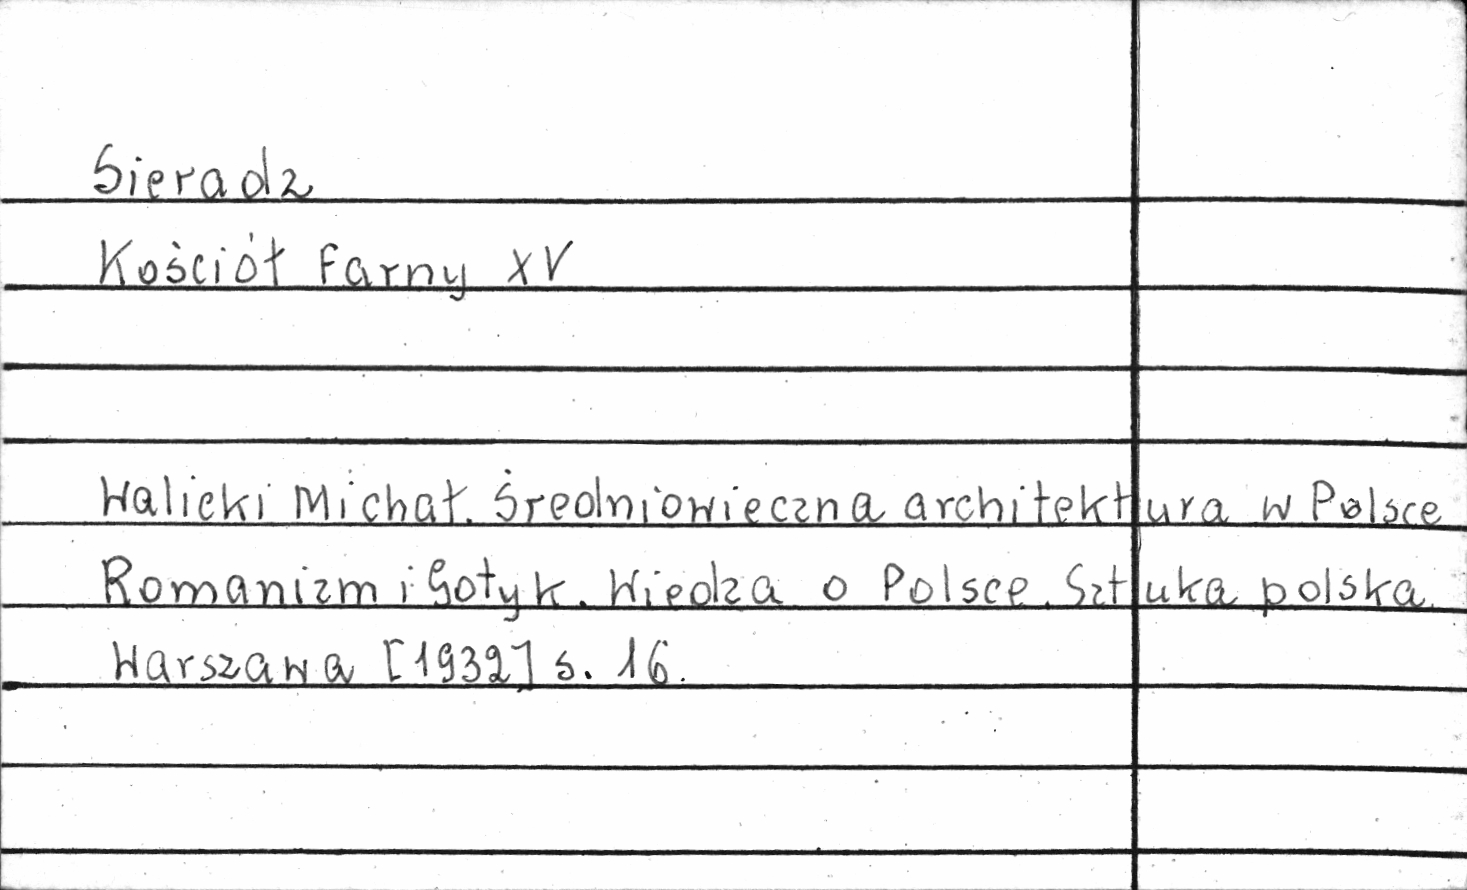 Sieradz
Kościół Farny XV
Walicki Michał. Średniowieczna architektura w Polsce
Romanizm i Gotyk. Wiedza o Polsce. Sztuka polska.
Warszawa [1932] s. 16.